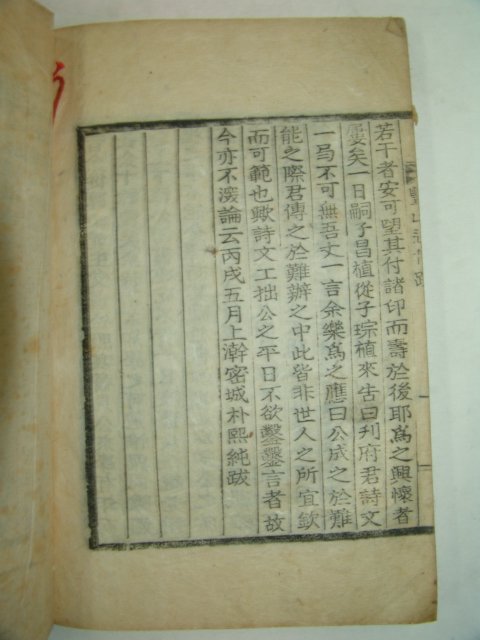 若干者安可望其付諸印而壽於後耶爲之興懷者
屢矣一日嗣子昌植從子琮植來告曰刋府君詩文
一局不可無吾丈一言余樂爲之應曰公成之於難
能之際君傳之於難辦之中此皆非世人之所宜歆
而可範也歟詩文工拙公之平日不欲鑿鑿言者故
今亦不深論云丙戌五月上澣密城朴熙純跋